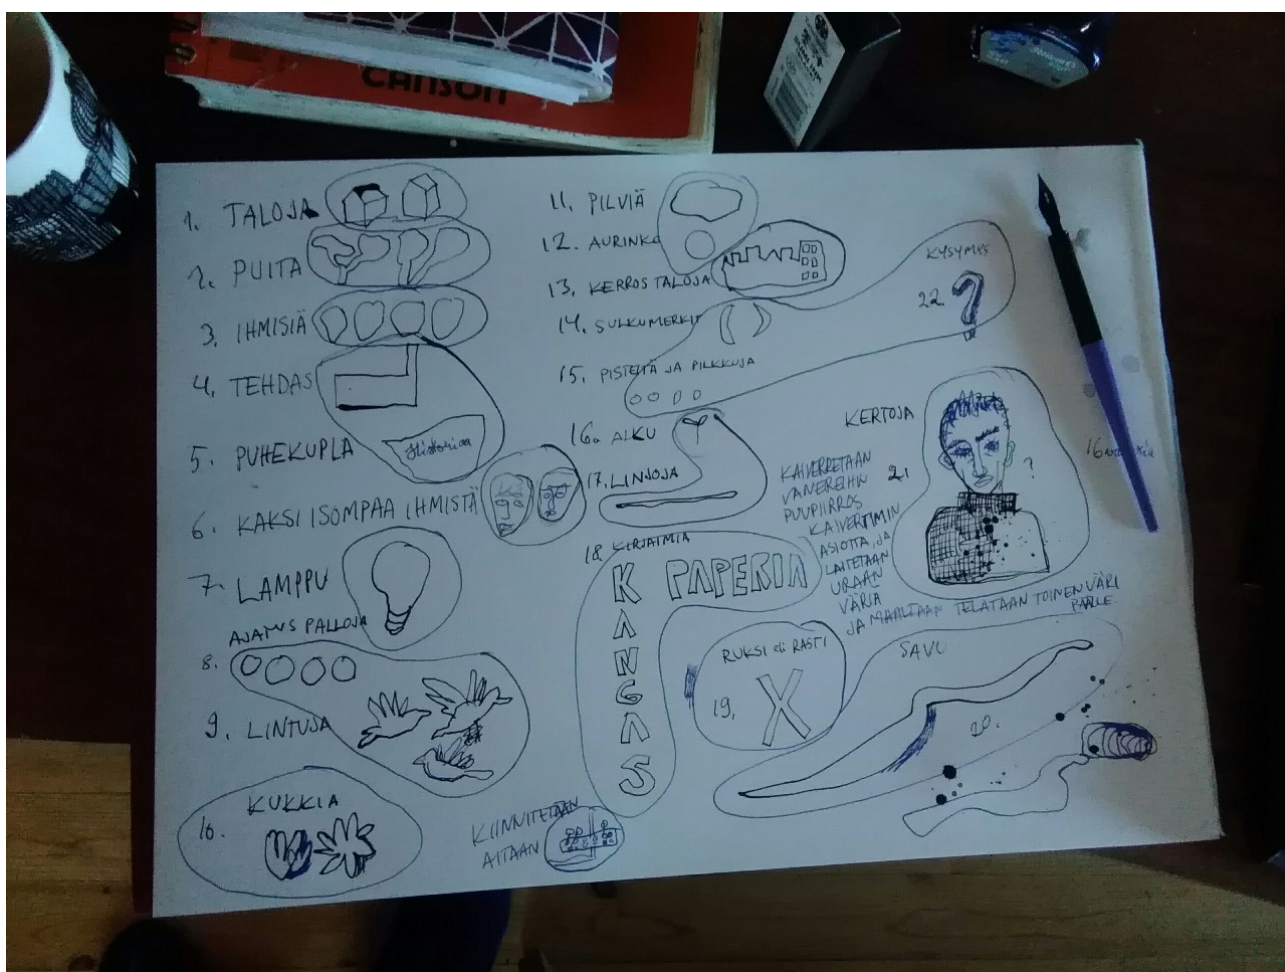 CANSON
1. TALOJA
2. PUITA
3. IHMISIÄ
4. TEHDAS
5. PUHEKUPLA
Historiaa
6. KAKSI ISOMPAA IHMISTÄ
7. LAMPPU
AJATUS PALLOJA
8.
9. LINTUJA
10. KUKKIA
KIINNITETÄÄN
AITAAN
11. PILVIÄ
12. AURINKO
13. KERROS TALOJA
14. SULKUMERKIT
15. PISTEITÄ JA PILKKUJA
16. ALKU
17. LINJOJA
18. KIRJAIMIA
KANGAS
PAPERIA
RUKSI eli RASTI
19. X
SAVU
20.
KERTOJA
21
?
KAIVERRETAAN
VANEREIHIN
PUUPIIRROS
KAIVERTIMIN
ASIOITA, JA
LAITETAAN
URAAN
VÄRIÄ
JA MAALTAAN TELATAAN TOINEN VÄRI
PÄÄLLE.
KYSYMYS
22. ?